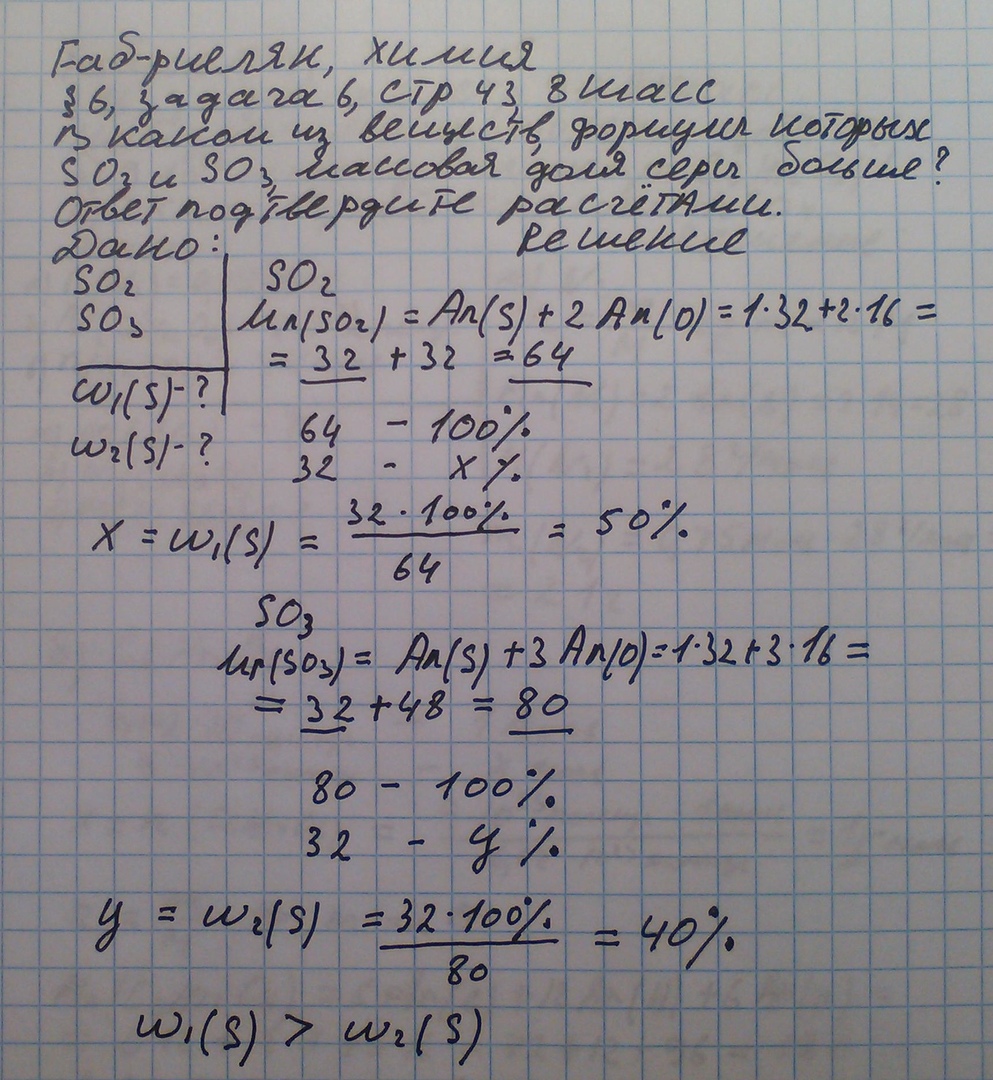 Габриелян, химия
§ 6, задача 6, стр 43, 8 класс
В каком из веществ, формулы которых
SO2 и SO3, массовая доля серы больше?
Ответ подтвердите расчётами.
Дано: Решение
SO2
SO3
w1(S)-?
w2(S)-?
SO2
Mr(SO2) = Ar(S) + 2 Ar(O) = 1·32+2·16 =
= 32 + 32 = 64
64 - 100%
32 - x%
x = w1(S) = 32·100% / 64 = 50%
SO3
Mr(SO3) = Ar(S) + 3 Ar(O) = 1·32+3·16 =
= 32 + 48 = 80
80 - 100%
32 - y%
y = w2(S) = 32·100% / 80 = 40%
w1(S) > w2(S)